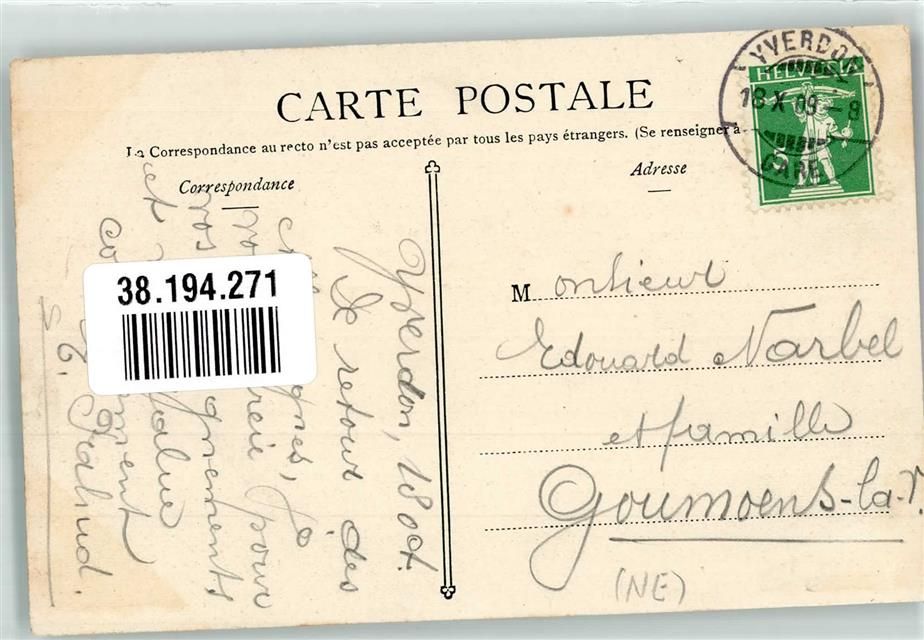 CARTE POSTALE
La Correspondance au recto n'est pas acceptée par tous les pays étrangers. (Se renseigner à
Correspondance
Adresse
YVERDON
18 X 09 - 8
GARE
HELVETIA
5
38.194.271
Yverdon, 18 oct.
De retour des
pour
vos
et salue
Piahud.
Monsieur
Edouard Narbel
et famille
Goumoens-la-V.
(NE)